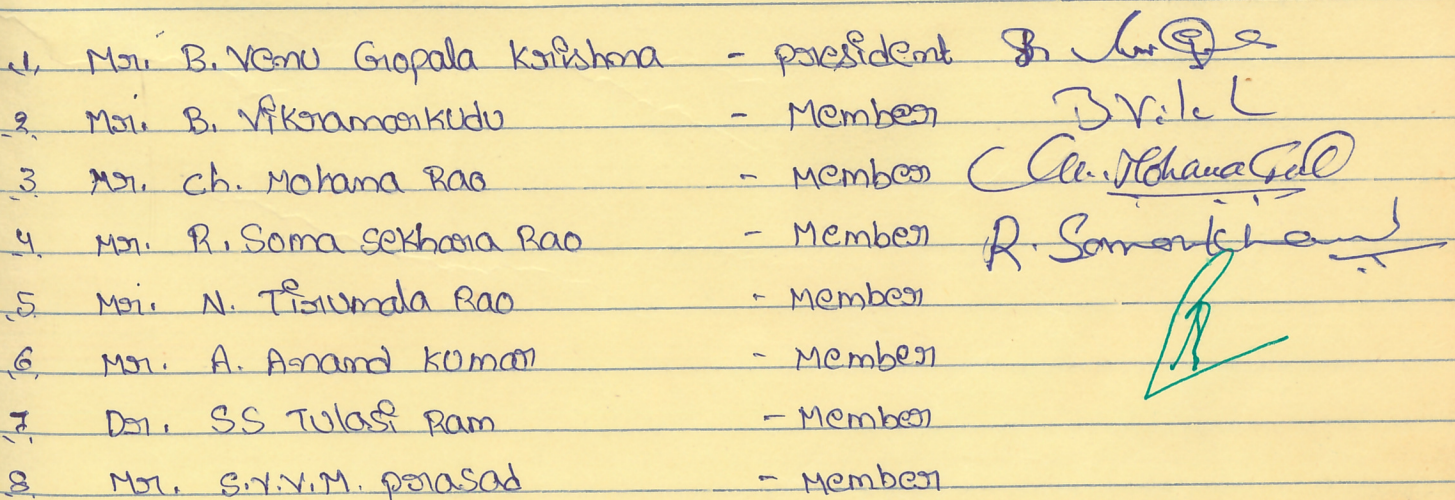 1, Mr. B. Venu Gopala Krishna - president
2. Mr. B. Vikramarkudu - Member
3. Mr. Ch. Mohana Rao - Member Ch. Mohana Rao
4. Mr. R. Soma Sekhara Rao - Member R.
5. Mr. N. Tirumala Rao - Member
6. Mr. A. Anand Kumar - Member
7. Dr. SS Tulasi Ram - Member
8. Mr. S.V.V.M. prasad - Member